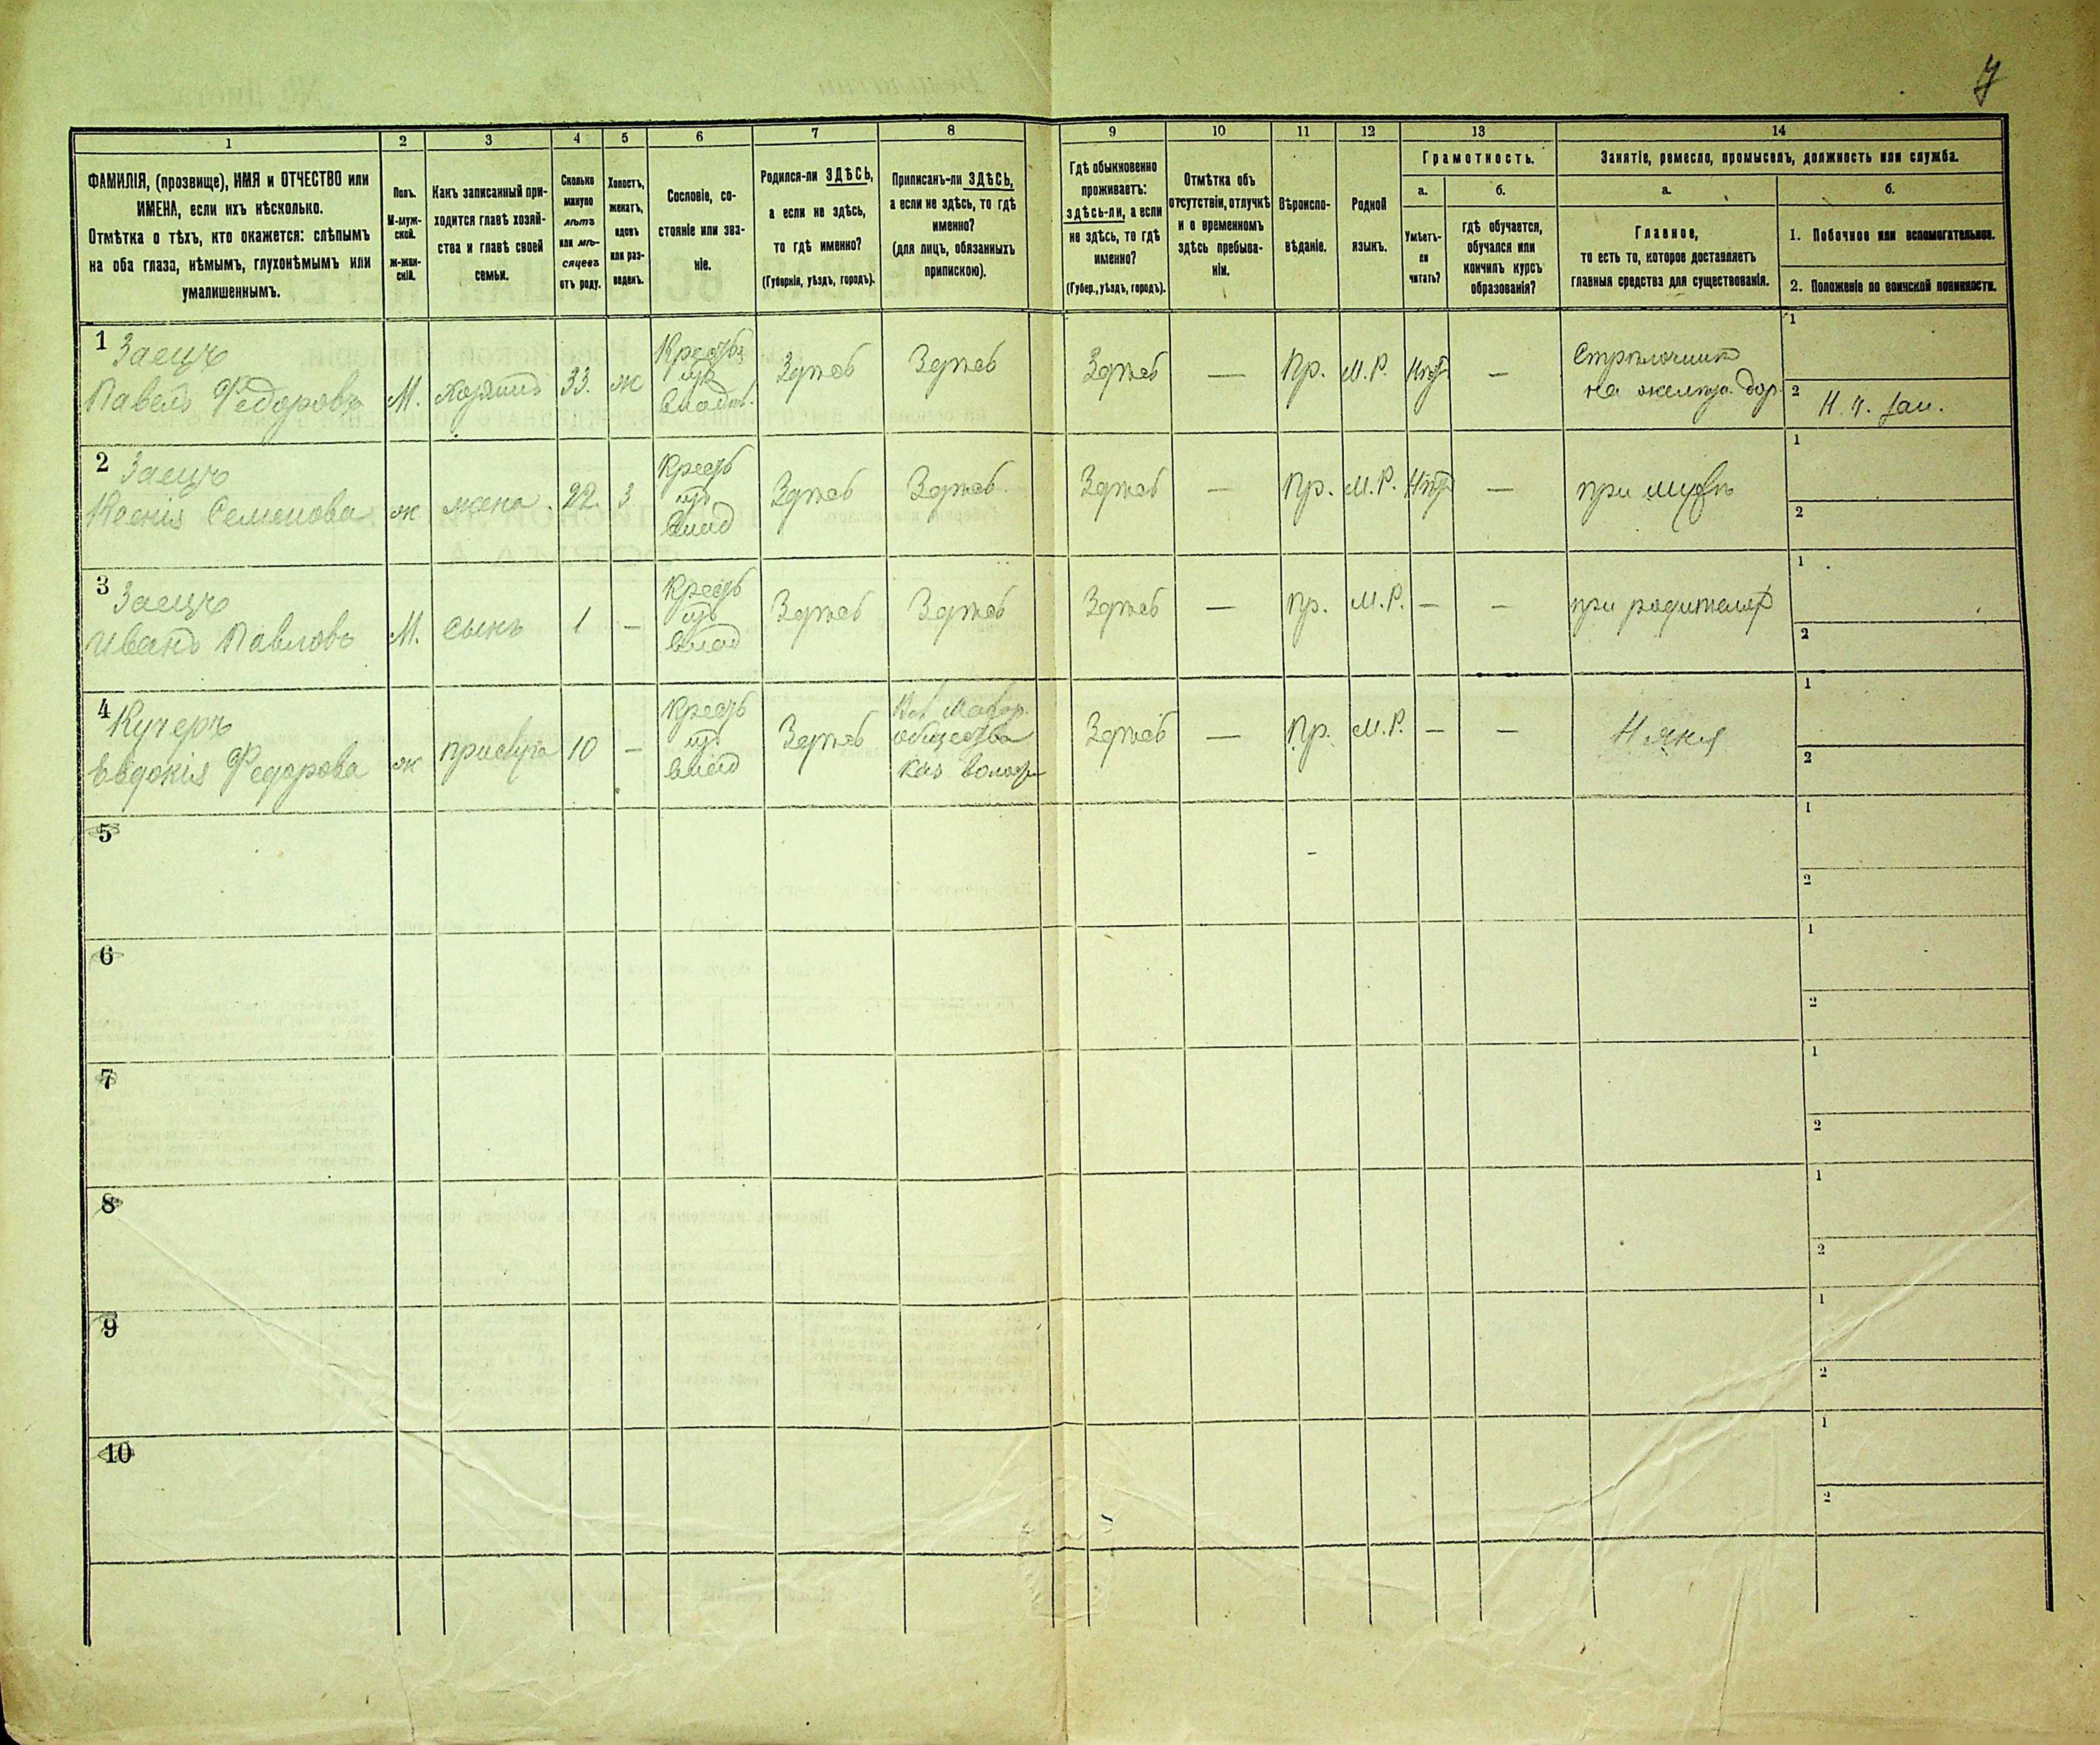 7
1 2 3 4 5 6 7 8 9 10 11 12 13 14
ФАМИЛІЯ, (прозвище), ИМЯ и ОТЧЕСТВО или
ИМЕНА, если ихъ нѣсколько.
Отмѣтка о тѣхъ, кто окажется: слѣпымъ
на оба глаза, нѣмымъ, глухонѣмымъ или
умалишеннымъ.
Полъ.
М-муж-
ской.
Ж-жен-
скій.
Какъ записанный при-
ходится главѣ хозяй-
ства и главѣ своей
семьи.
Сколько
минуло
лѣтъ
или мѣ-
сяцевъ
отъ роду.
Холостъ,
женатъ,
вдовъ
или раз-
веденъ.
Сословіе, со-
стояніе или зва-
ніе.
Родился-ли ЗДѢСЬ,
а если не здѣсь,
то гдѣ именно?
(Губернія, уѣздъ, городъ).
Приписанъ-ли ЗДѢСЬ,
а если не здѣсь, то гдѣ
именно?
(для лицъ, обязанныхъ
припискою).
Гдѣ обыкновенно
проживаетъ:
здѣсь-ли, а если
не здѣсь, то гдѣ
именно?
(Губер., уѣздъ, городъ).
Отмѣтка объ
отсутствіи, отлучкѣ
и о временномъ
здѣсь пребыва-
ніи.
Вѣроиспо-
вѣданіе.
Родной
языкъ.
Грамотность.
а.
Умѣетъ-
ли
читать?
б.
гдѣ обучается,
обучался или
кончилъ курсъ
образованія?
Занятіе, ремесло, промыселъ, должность или служба.
а.
Главное,
то есть то, которое доставляетъ
главныя средства для существованія.
б.
1. Побочное или вспомогательное.
2. Положеніе по воинской повинности.
1 Заецъ
Павелъ Федоровъ
М. хозяинъ 33. ж
Крестьъ
изъ
владѣ.
Здѣсь Здѣсь Здѣсь — Пр. М.Р. Нѣтъ —
Стрѣлочникъ
на желѣз. дор.
1
2 Н. ч. зап.
2 Заецъ
Ксенія Семенова
ж жена. 22. з
Крестъ
изъ
влад
Здѣсь Здѣсь Здѣсь — Пр. М.Р. Нѣтъ — при мужѣ
1
2
3 Заецъ
Иванъ Павловъ
М. сынъ 1 —
Крестъ
изъ
влад
Здѣсь Здѣсь Здѣсь — Пр. М.Р. — — при родителях
1
2
4 Кучеръ
Евдокія Федорова
ж прислуга 10 —
Крестъ
изъ
влад
Здѣсь
общества
Каз волости
Здѣсь — Пр. М.Р. — — Няня
1
2
5
1
2
6
1
2
7
1
2
8
1
2
9
1
2
10
1
2